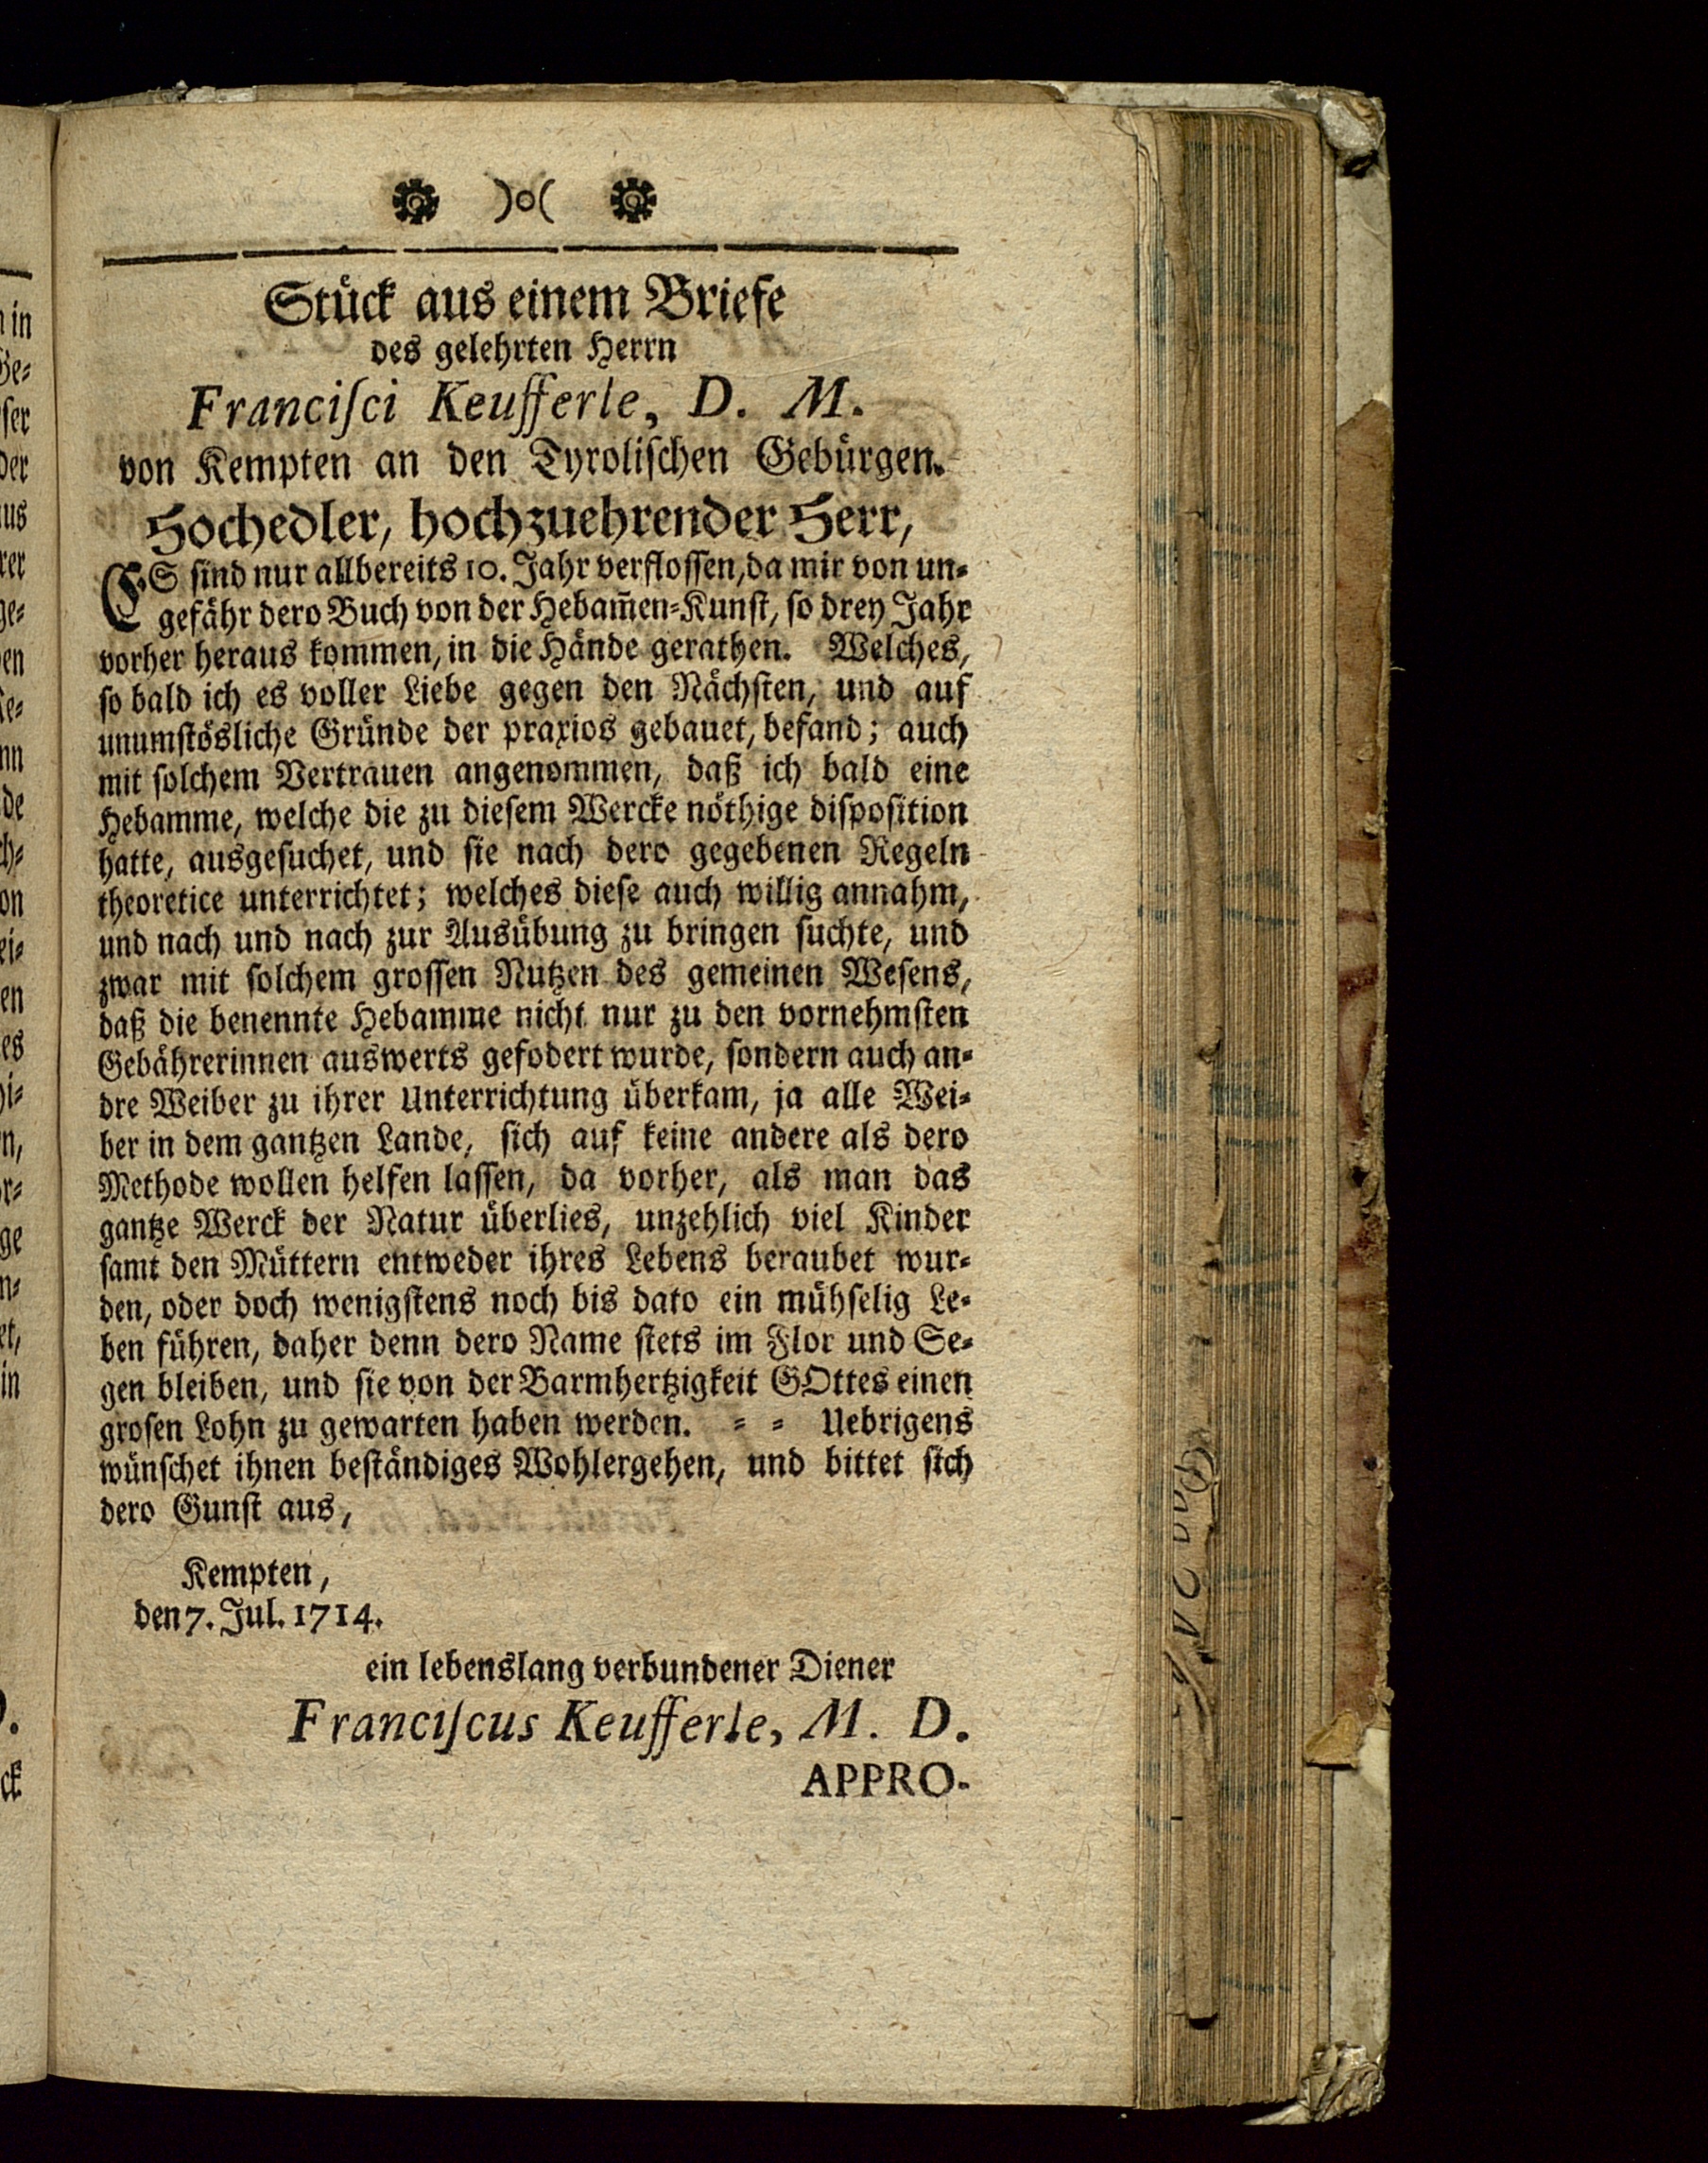 )o(
Stück aus einem Briefe
des gelehrten Herrn
Franciſci Keufferle, D. M.
von Kempten an den Tyroliſchen Gebürgen.
Hochedler, hochzuehrender Herr,
ES ſind nur allbereits 10. Jahr verfloſſen, da mir von un-
gefähr dero Buch von der Hebam̄en-Kunſt, ſo drey Jahr
vorher heraus kommen, in die Hände gerathen. Welches,
ſo bald ich es voller Liebe gegen den Nächſten, und auf
unumſtösliche Gründe der praxios gebauet, befand; auch
mit ſolchem Vertrauen angenommen, daß ich bald eine
Hebamme, welche die zu dieſem Wercke nöthige diſpoſition
hatte, ausgeſuchet, und ſie nach dero gegebenen Regeln
theoretice unterrichtet; welches dieſe auch willig annahm,
und nach und nach zur Ausübung zu bringen ſuchte, und
zwar mit ſolchem groſſen Nutzen des gemeinen Weſens,
daß die benennte Hebamme nicht nur zu den vornehmſten
Gebährerinnen auswerts gefodert wurde, ſondern auch an-
dre Weiber zu ihrer Unterrichtung überkam, ja alle Wei-
ber in dem gantzen Lande, ſich auf keine andere als dero
Methode wollen helfen laſſen, da vorher, als man das
gantze Werck der Natur überlies, unzehlich viel Kinder
ſamt den Müttern entweder ihres Lebens beraubet wur-
den, oder doch wenigſtens noch bis dato ein mühſelig Le-
ben führen, daher denn dero Name ſtets im Flor und Se-
gen bleiben, und ſie von der Barmhertzigkeit GOttes einen
groſen Lohn zu gewarten haben werden. = = Uebrigens
wünſchet ihnen beſtändiges Wohlergehen, und bittet ſich
dero Gunſt aus,
Kempten,
den 7. Jul. 1714.
ein lebenslang verbundener Diener
Franciſcus Keufferle, M. D.
APPRO-